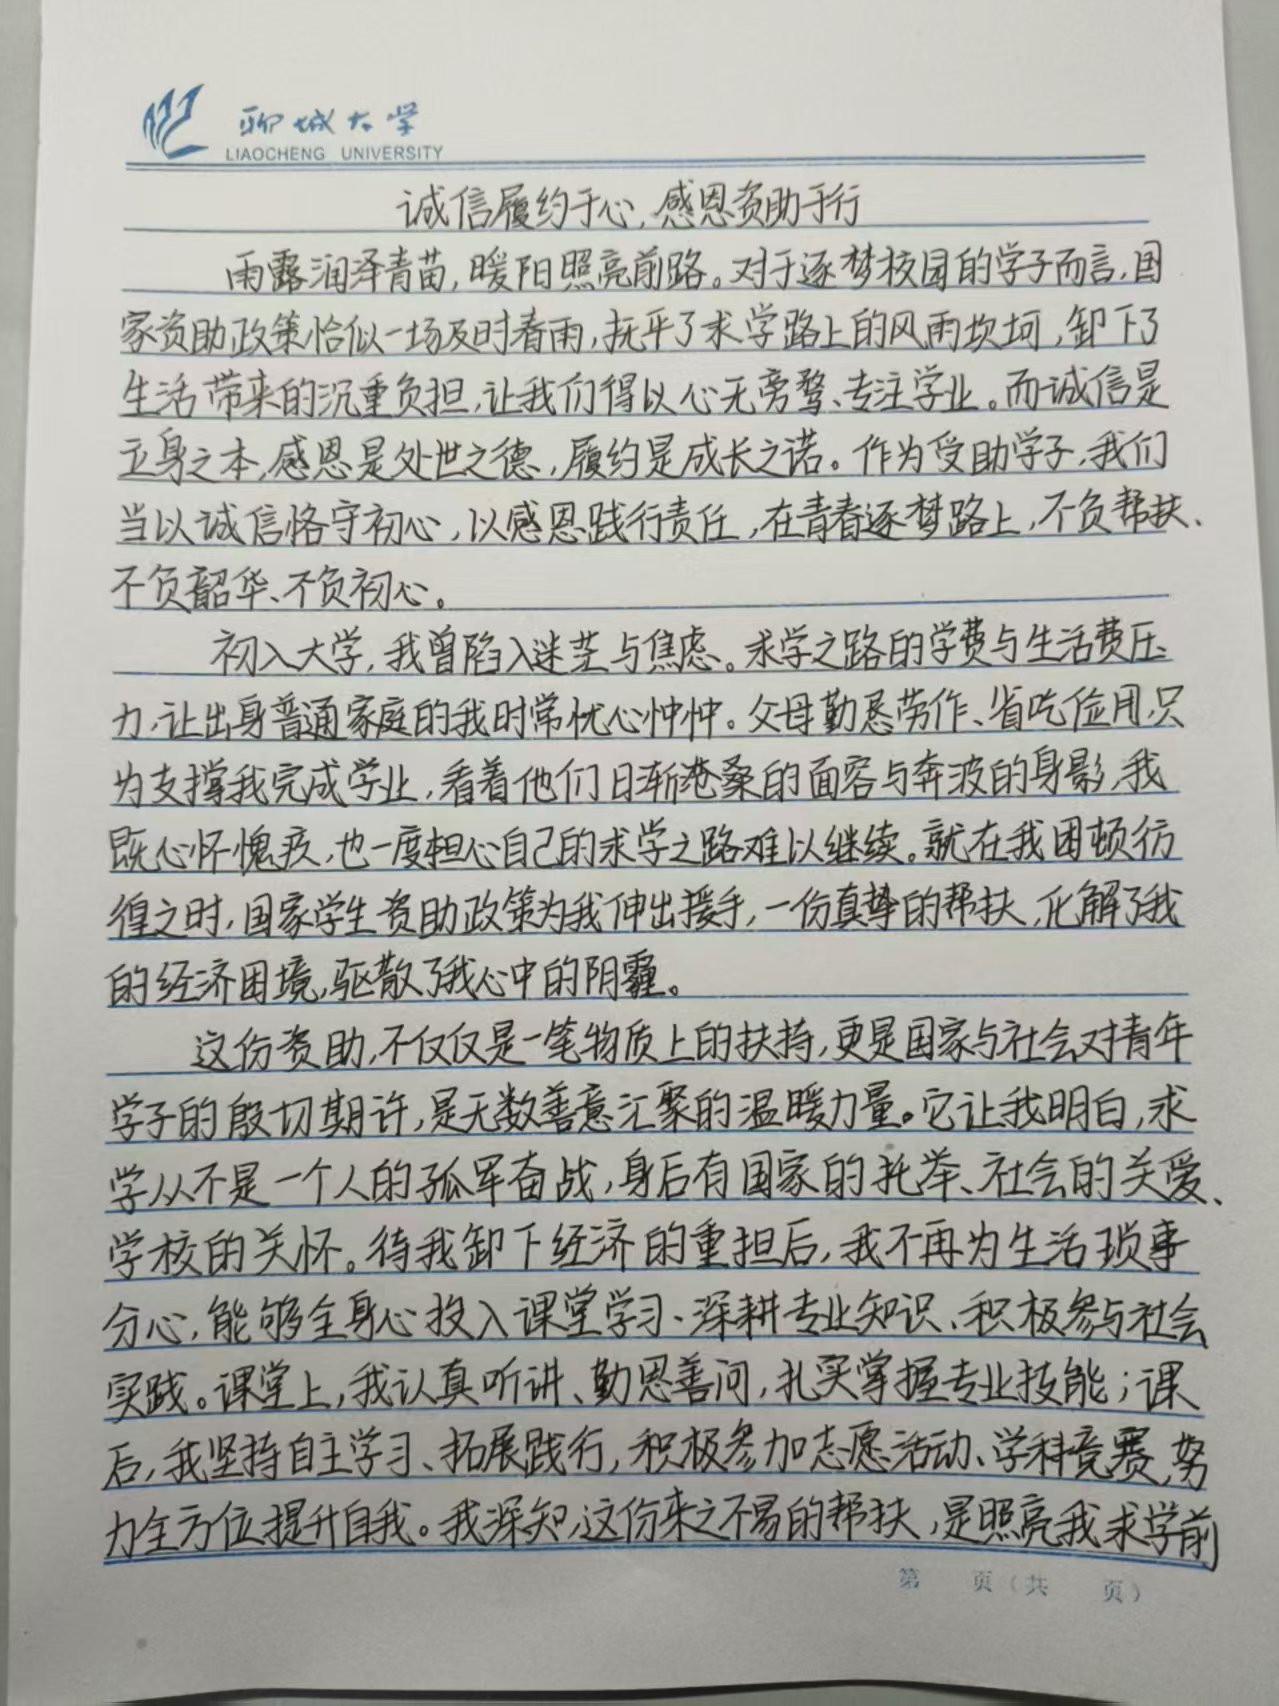 聊城大学
LIAOCHENG UNIVERSITY
诚信履约于心,感恩资助于行
雨露润泽青苗,暖阳照亮前路。对于逐梦校园的学子而言,国
家资助政策恰似一场及时春雨,抚平了求学路上的风雨坎坷,卸下了
生活带来的沉重负担,让我们得以心无旁骛、专注学业。而诚信是
立身之本,感恩是处世之德,履约是成长之诺。作为受助学子,我们
当以诚信恪守初心,以感恩践行责任,在青春逐梦路上,不负帮扶、
不负韶华、不负初心。
初入大学,我曾陷入迷茫与焦虑。求学之路的学费与生活费压
力,让出身普通家庭的我时常忧心忡忡。父母勤恳劳作、省吃俭用,只
为支撑我完成学业,看着他们日渐沧桑的面容与奔波的身影,我
既心怀愧疚,也一度担心自己的求学之路难以继续。就在我困顿彷
徨之时,国家学生资助政策为我伸出援手,一份真挚的帮扶,化解了我
的经济困境,驱散了我心中的阴霾。
这份资助,不仅仅是一笔物质上的扶持,更是国家与社会对青年
学子的殷切期许,是无数善意汇聚的温暖力量。它让我明白,求
学从不是一个人的孤军奋战,身后有国家的托举、社会的关爱、
学校的关怀。待我卸下经济的重担后,我不再为生活琐事
分心,能够全身心投入课堂学习、深耕专业知识、积极参与社会
实践。课堂上,我认真听讲、勤思善问,扎实掌握专业技能;课
后,我坚持自主学习、拓展践行,积极参加志愿活动、学科竞赛,努
力全方位提升自我。我深知,这份来之不易的帮扶,是照亮我求学前
第 页(共 页)